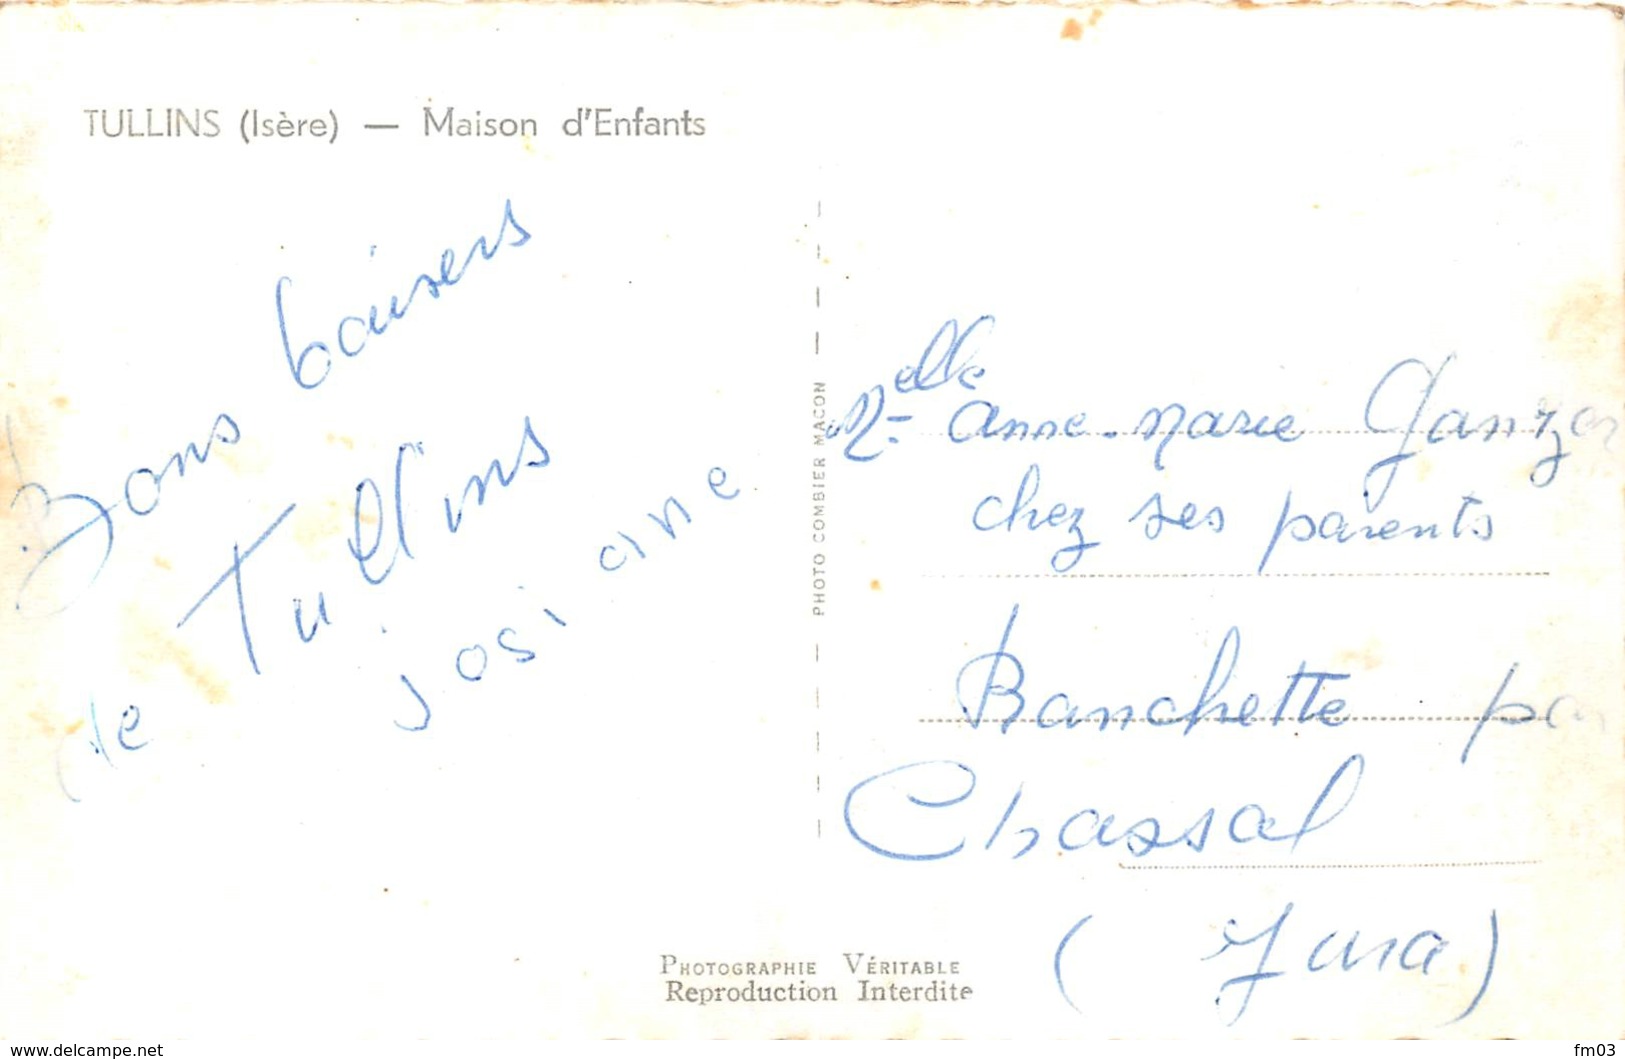 TULLINS (Isère) — Maison d'Enfants
Bons baisers
de Tullins
josiane
PHOTO COMBIER MACON
Melle Anne-Marie
chez ses parents
Ranchette par
Chassal
(Jura)
PHOTOGRAPHIE VÉRITABLE
Reproduction Interdite
www.delcampe.net
fm03